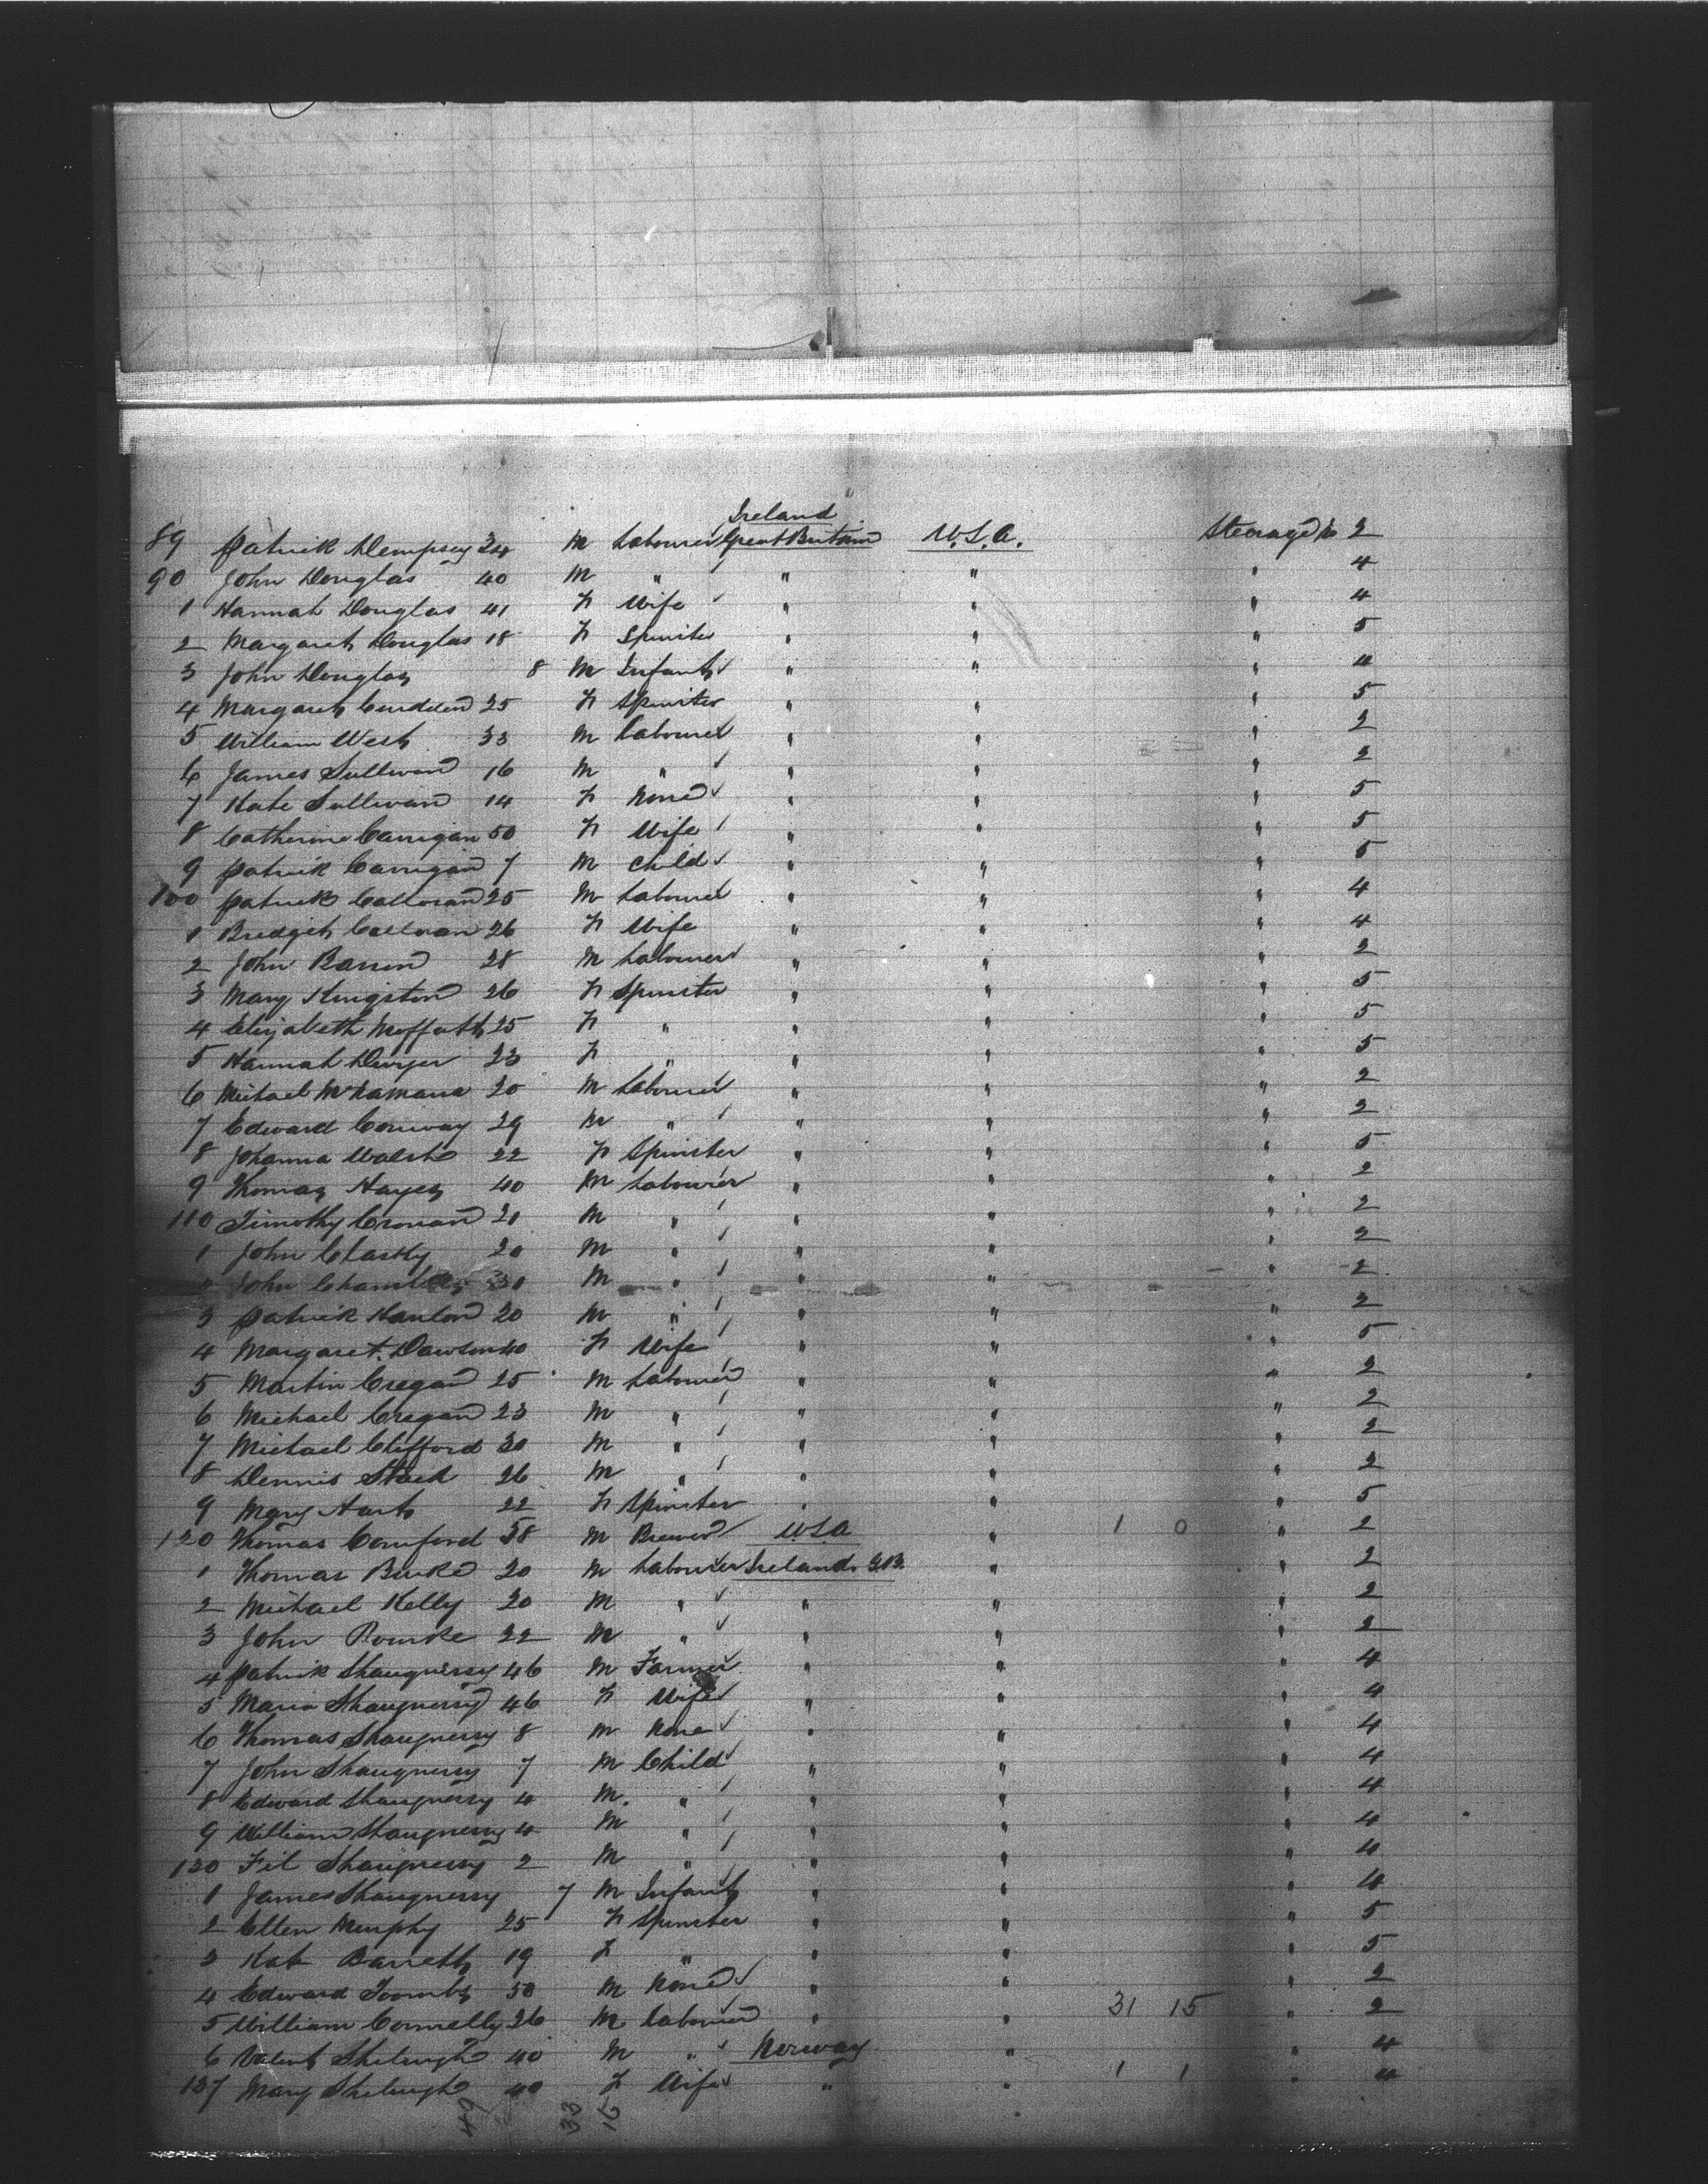 Ireland
89 Patrick Dempsey 34 M Labourer Great Britain U.S.A. Steerage No 2
90 John Douglas 40 M " " " " 4
1 Hannah Douglas 41 F Wife " " " 4
2 Margaret Douglas 18 F Spinster " " " 5
3 John Douglas 8 M Infant " " " 4
4 Margaret 25 F Spinster " " " 5
5 William West 33 M Labourer " " " 2
6 James Sullivan 16 M " " " " 2
7 Kate Sullivan 14 F None " " " 5
8 Catherine Carrigan 50 F Wife " " " 5
9 Patrick Carrigan 7 M Child " " " 5
100 Patrick Calloran 25 M Labourer " " " 4
1 Bridget Calloran 26 F Wife " " " 4
2 John Barron 28 M Labourer " " " 2
3 Mary Kingston 26 F Spinster " " " 5
4 Elizabeth Moffatt 25 F " " " " 5
5 Hannah Dwyer 23 F " " " " 5
6 Michael McNamara 20 M Labourer " " " 2
7 Edward Conway 29 M " " " " 2
8 Johanna Walsh 22 F Spinster " " " 5
9 Thomas Hayes 40 M Labourer " " " 2
110 Timothy Cronan 21 M " " " " 2
1 John Clasky 20 M " " " " 2
" John Chambers 30 M " " " " 2
3 Patrick Hanlon 20 M " " " " 2
4 Margaret Dawson 40 F Wife " " " 5
5 Martin Cregan 25 M Labourer " " " 2
6 Michael Cregan 23 M " " " " 2
7 Michael Clifford 30 M " " " " 2
8 Dennis Stack 26 M " " " " 2
9 Mary Hart 22 F Spinster " " " 5
120 Thomas Comford 58 M Brewer U.S.A " 1 0 " 2
1 Thomas Burke 20 M Labourer Ireland G.B. " " 2
2 Michael Kelly 20 M " " " " 2
3 John Rourke 22 M " " " " 2
4 Patrick Shaugnessy 46 M Farmer " " " 4
5 Maria Shaugnessy 46 F Wife " " " 4
6 Thomas Shaugnessy 8 M None " " " 4
7 John Shaugnessy 7 M Child " " " 4
8 Edward Shaugnessy 4 M. " " " " 4
9 William Shaugnessy 4 M " " " " 4
130 Fil Shaugnessy 2 M " " " " 4
1 James Shaugnessy 7 M Infant " " " 4
2 Ellen Murphy 25 F Spinster " " " 5
3 Kate Barrett 19 F " " " " 5
4 Edward Toombs 50 M None " " " 2
5 William Connelly 26 M Labourer " " 31 15 " 2
6 40 M " Norway " " 4
137 Mary 40 F Wife " " 1 1 " 4
49 33 16